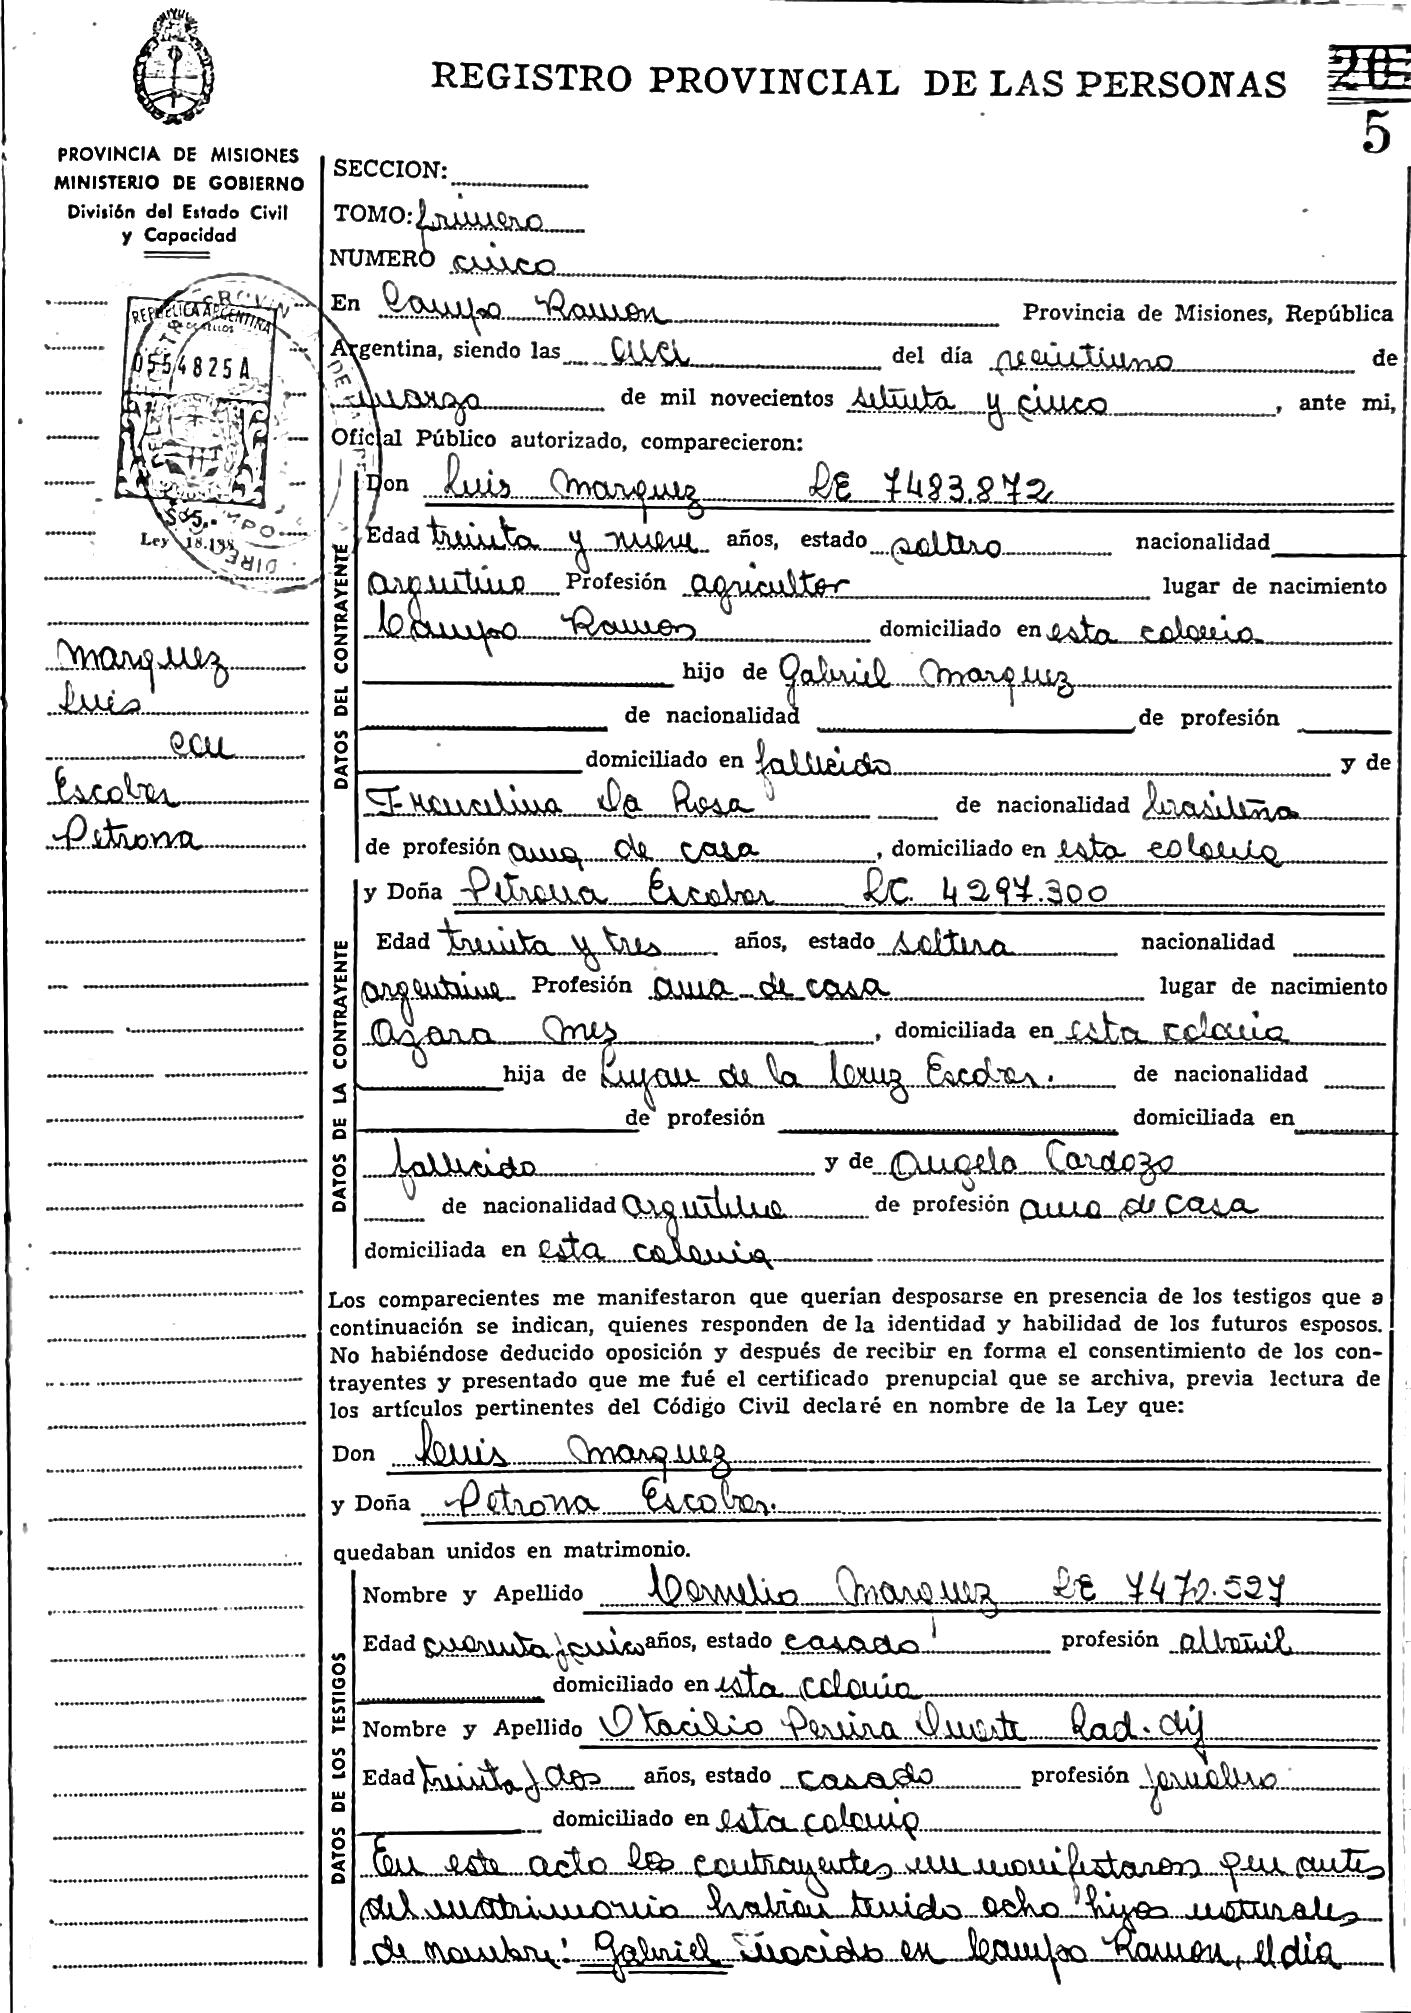 REGISTRO PROVINCIAL DE LAS PERSONAS
5
PROVINCIA DE MISIONES
MINISTERIO DE GOBIERNO
División del Estado Civil
y Capacidad
REPUBLICA ARGENTINA
0554825A
$ 5.-
Ley 18.188
Marquez
Luis
con
Escobar
Petrona
SECCION:
TOMO: primero
NUMERO cinco
En Campo Ramon Provincia de Misiones, República
Argentina, siendo las del día veintiuno de
marzo de mil novecientos setenta y cinco, ante mi,
Oficial Público autorizado, comparecieron:
DATOS DEL CONTRAYENTE
Don Luis Marquez LE 7483.872
Edad treinta y nueve años, estado soltero nacionalidad
argentino Profesión agricultor lugar de nacimiento
Campo Ramon domiciliado en esta colonia
hijo de Gabriel Marquez
de nacionalidad de profesión
domiciliado en fallecido y de
Francelina Da Rosa de nacionalidad brasileña
de profesión ama de casa, domiciliado en esta colonia
DATOS DE LA CONTRAYENTE
y Doña Petrona Escobar LC. 4297.300
Edad treinta y tres años, estado soltera nacionalidad
argentina Profesión ama de casa lugar de nacimiento
Azara Mes, domiciliada en esta colonia
hija de Lujan de la Cruz Escobar. de nacionalidad
de profesión domiciliada en
fallecido y de Angela Cardozo
de nacionalidad argentina de profesión ama de casa
domiciliada en esta colonia
Los comparecientes me manifestaron que querían desposarse en presencia de los testigos que a
continuación se indican, quienes responden de la identidad y habilidad de los futuros esposos.
No habiéndose deducido oposición y después de recibir en forma el consentimiento de los con-
trayentes y presentado que me fué el certificado prenupcial que se archiva, previa lectura de
los artículos pertinentes del Código Civil declaré en nombre de la Ley que:
Don Luis Marquez
y Doña Petrona Escobar.
quedaban unidos en matrimonio.
DATOS DE LOS TESTIGOS
Nombre y Apellido Cornelio Marquez LE 7470.527
Edad cuarenta y cinco años, estado casado profesión albañil
domiciliado en esta colonia
Nombre y Apellido Otacilio Pereira Duarte Rad. dij
Edad treinta y dos años, estado casado profesión jornalero
domiciliado en esta colonia
En este acto los contrayentes me manifestaron que antes
del matrimonio habian tenido ocho hijos naturales
de nombre: Gabriel nacido en Campo Ramon, el dia